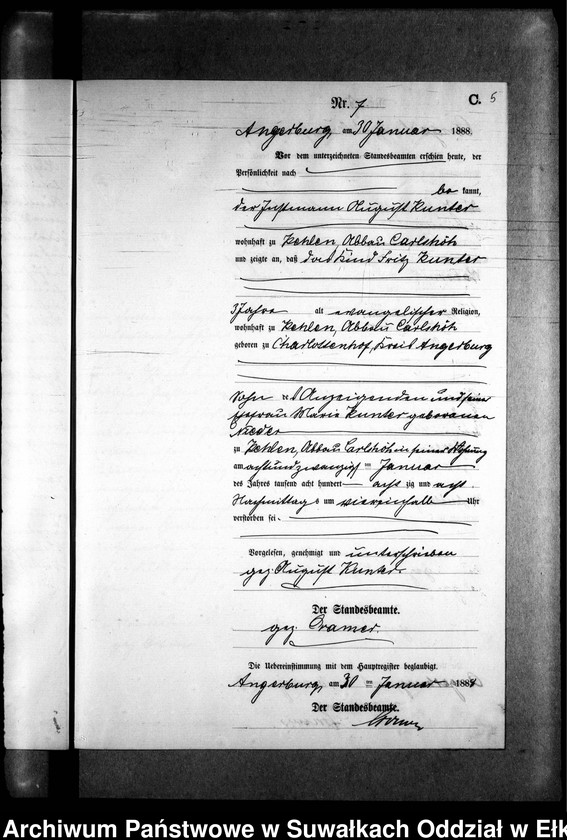 Nr. 7
C. 5
Angerburg, am 30 Januar 1888.
Vor dem unterzeichneten Standesbeamten erschien heute, der
Persönlichkeit nach
be kannt,
der Instmann August Kunter
wohnhaft zu Kehlen, Abbau Carlshöh
und zeigte an, daß das Kind Fritz Kunter
3 Jahre alt evangelischer Religion,
wohnhaft zu Kehlen, Abbau Carlshöh
geboren zu Charlottenhof, Kreis Angerburg
Sohn des Anzeigenden und seiner
Ehefrau Marie Kunter geborenen
Nieder
zu Kehlen, Abbau Carlshöh in seiner Wohnung
am achtundzwanzigsten Januar
des Jahres tausend acht hundert acht zig und acht
Nachmittags um viereinhalb Uhr
verstorben sei.
Vorgelesen, genehmigt und unterschrieben
gez. August Kunter.
Der Standesbeamte.
gez. Cramer.
Die Uebereinstimmung mit dem Hauptregister beglaubigt.
Angerburg, am 30 ten Januar 1888
Der Standesbeamte.
Cramer
Archiwum Państwowe w Suwałkach Oddział w Ełk